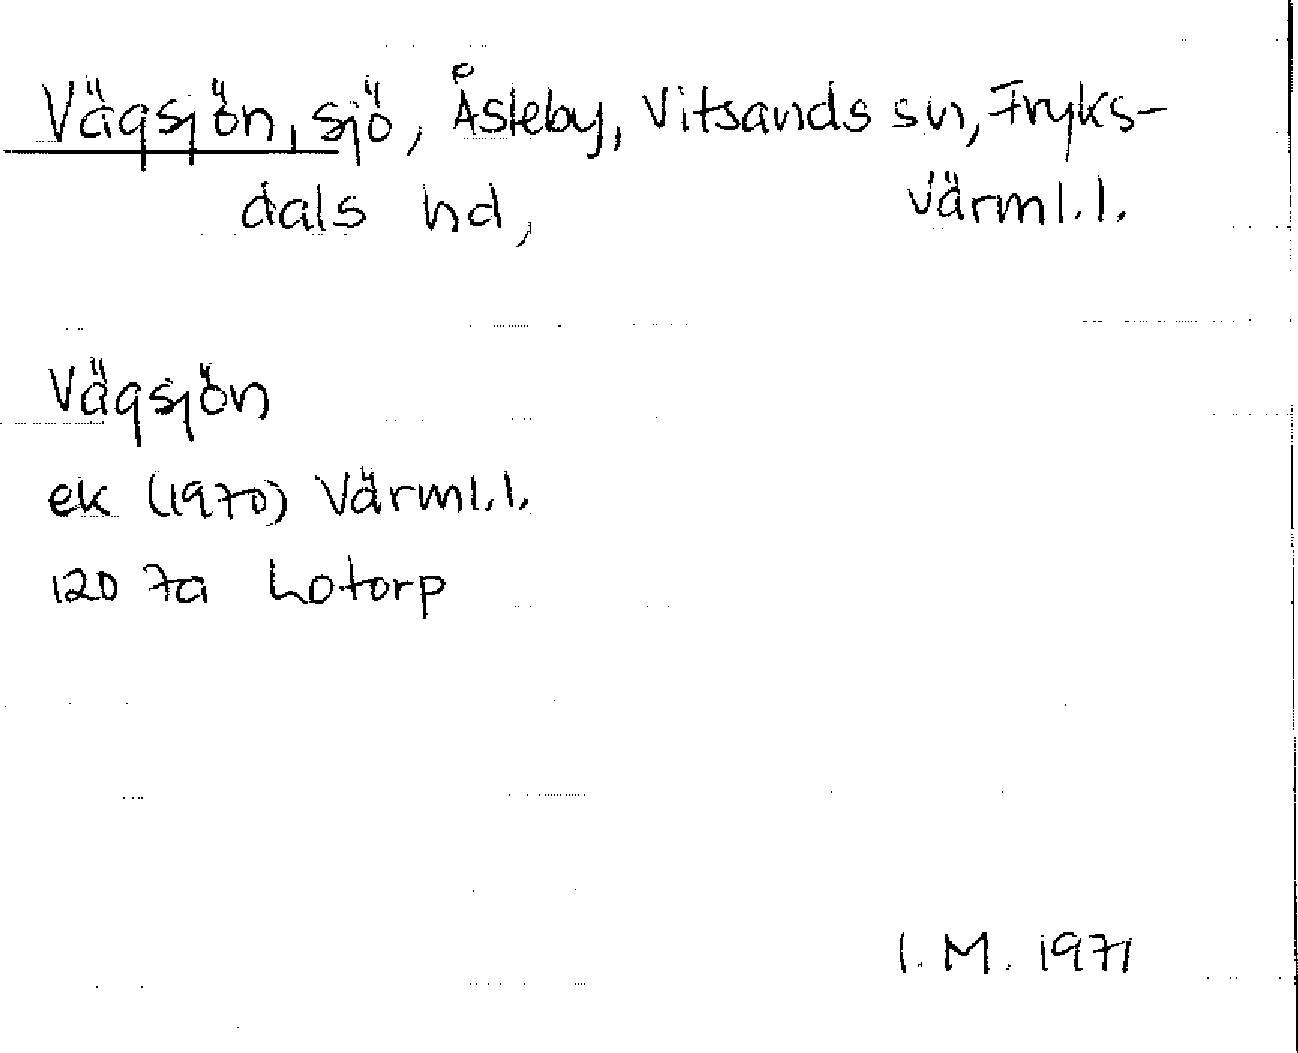 Vägsjön, sjö, Åsteby, Vitsands sn, Fryks-
dals hd, Värml.l.
Vägsjön
ek (1970) Värml.l.
120 7a Lotorp
I. M. 1971